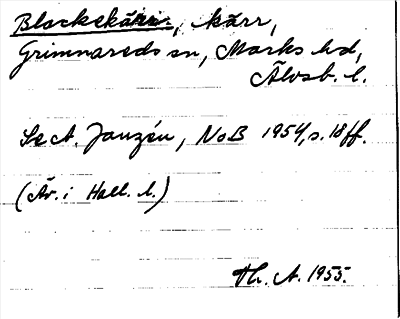 Blackekärr, kärr,
Grimnareds sn, Marks hd,
Älvsb. l.
Se A. Janzén, NoB 1954, s. 18 ff.
(Äv. i Hall. l.)
Th. A. 1955.